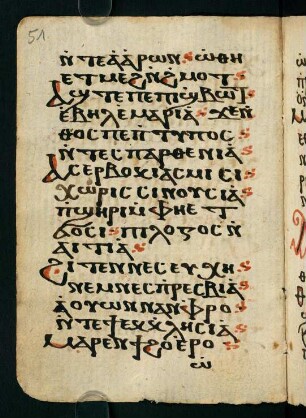 51
ⲛ̀ⲧⲉⲁ̀ⲁⲣⲱⲛ: ⲱ̀ⲑⲏ
ⲉⲧⲙⲉϩⲛ̀ϩⲙⲟⲧ:
ⲇⲱⲧⲉⲡⲉⲡⲓϣⲃⲱⲧ
ⲉⲃⲏⲗⲉⲙⲁⲣⲓⲁ̀: ϫⲉⲛ̀
ⲑⲟⲥⲡⲉⲡⲧⲩⲡⲟⲥ:
ⲛ̀ⲧⲉⲥⲡⲁⲣⲑⲉⲛⲓⲁ̀
ⲁⲥⲉⲣⲃⲟⲕⲓⲁⲥⲙⲓⲥⲓ
ⲭⲱⲣⲓⲥⲥⲓⲛⲟⲩⲥⲓⲁ̀
ⲡϣⲏⲣⲓⲙ̀ⲫⲏⲉⲧ
ϭⲟⲥⲓ: ⲡⲓⲗⲟⲅⲟⲥⲛ̀
ⲁⲓⲧⲓⲁ:
ϩⲓⲧⲉⲛⲛⲉⲥⲉⲩⲭⲏ:
ⲛⲉⲙⲛⲉⲥⲡ̀ⲣⲉⲥⲃⲓⲁ:
ⲁⲟⲩⲱⲛⲛⲁⲛⲫ̀ⲣⲟ:
ⲛ̀ⲧⲉϯⲉⲕⲕⲗⲏⲥⲓⲁ:
ⲙⲁⲣⲉⲛϯϩⲟⲉⲣⲟ:
ⲱ̀